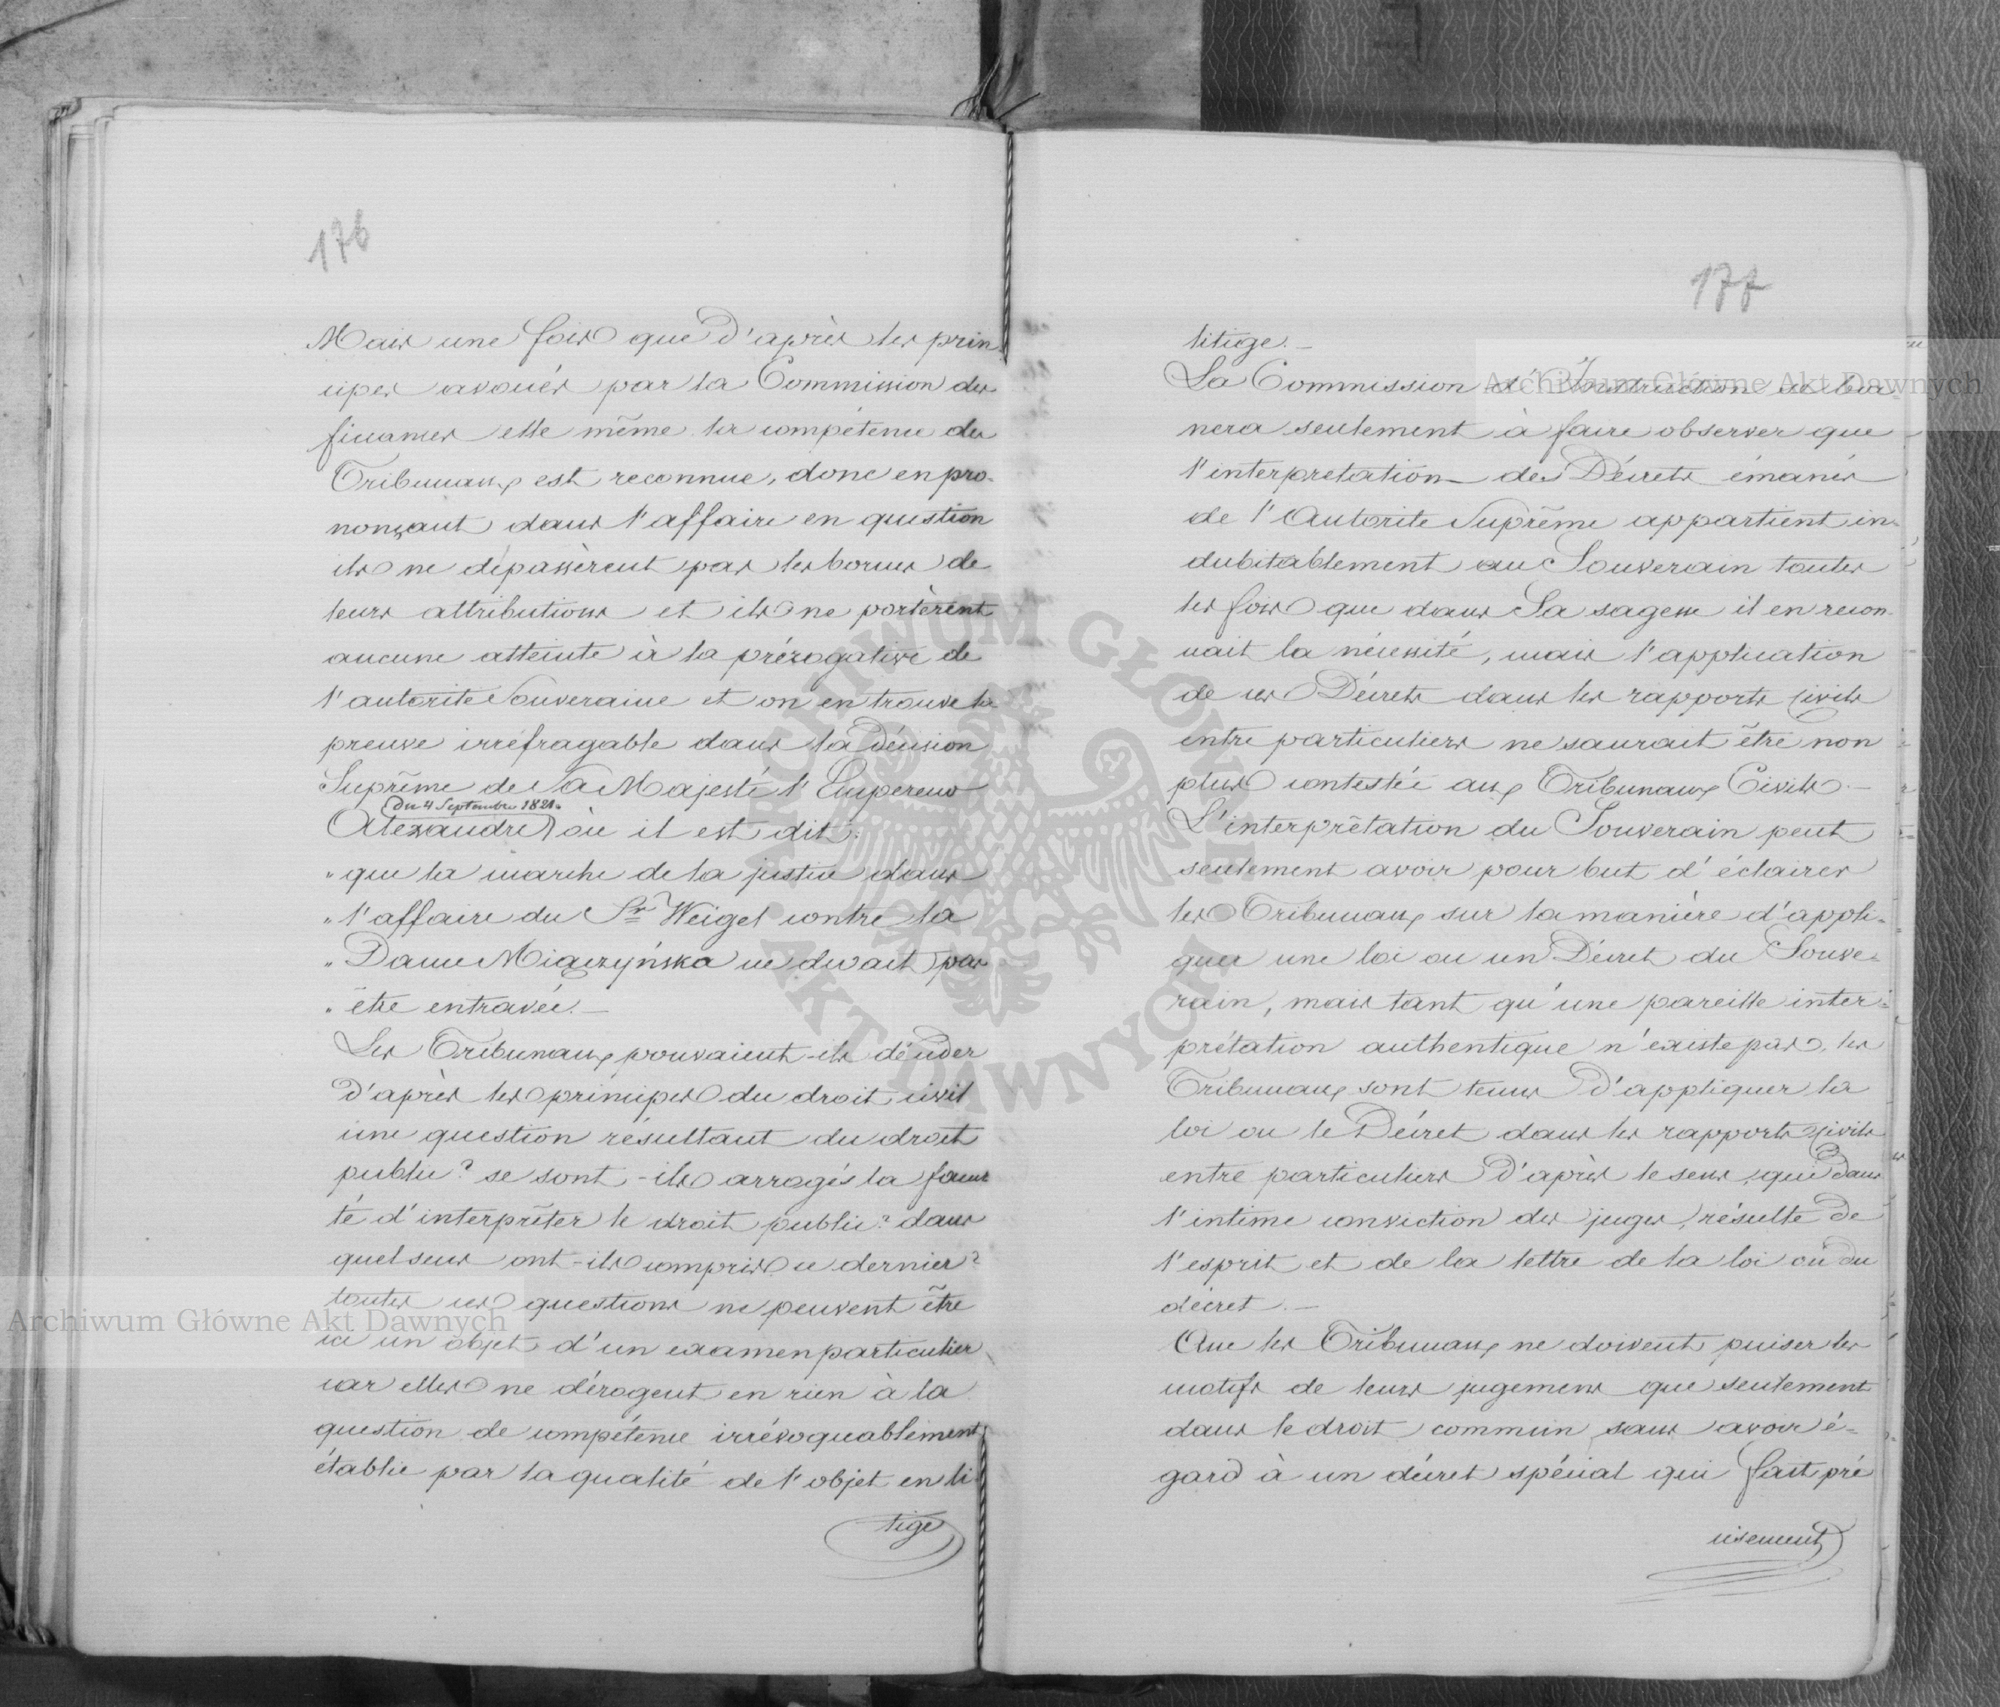 176
Mais une fois que d'après les prin
cipes avoués par la Commission des
finances elle même la compétence des
Tribunaux est reconnue, donc en pro-
nonçant dans l'affaire en question
ils ne dépassèrent pas les bornes de
leurs attributions et ils ne portèrent
aucune atteinte à la prérogative de
l'autorité Souveraine et on en trouve la
preuve irréfragable dans la Décision
Suprême de Sa Majesté l'Empereur
du 4 Septembre 1821.
Alexandre où il est dit:
"que la marche de la justice dans
"l'affaire du Sr Weigel contre la
"Dame Miączyńska ne devait pas
"être entravée.—
Les Tribunaux pouvaient-ils décider
d'après les principes du droit civil
une question résultant du droit
public? se sont-ils arrogés la facul
té d'interprêter le droit public? dans
quel sens ont-ils compris ce dernier?
toutes ces questions ne peuvent être
ici un objet d'un examen particulier
car elles ne dérogent en rien à la
question de compétence irrévoquablement
établie par la qualité de l'objet en li
tige
177
litige.—
La Commission d'Instruction se bor
nera seulement à faire observer que
l'interpretation des Décrets émanés
de l'Autorite Suprême appartient in-
dubitablement au Souverain toutes
les fois que dans Sa sagesse il en recon
nait la nécessité, mais l'application
de ces Décrets dans les rapports civils
entre particuliers ne saurait être non
plus contestée aux Tribunaux Civils.—
L'interprêtation du Souverain peut
seulement avoir pour but d'éclairer
les Tribunaux sur la manière d'appli-
quer une loi ou un Décret du Souve-
rain, mais tant qu'une pareille inter-
prétation authentique n'existe pas, les
Tribunaux sont tenus d'appliquer la
loi ou le Décret dans les rapports civils
entre particuliers d'après le sens, qui dans
l'intime conviction des juges, résulte de
l'esprit et de la lettre de la loi ou du
décret.—
Que les Tribunaux ne doivent puiser les
motifs de leurs jugemens que seulement
dans le droit commun sans avoir é-
gard à un décret spécial qui fait pré
cisement
Archiwum Główne Akt Dawnych
Archiwum Główne Akt Dawnych
ARCHIWUM GŁÓWNE AKT DAWNYCH